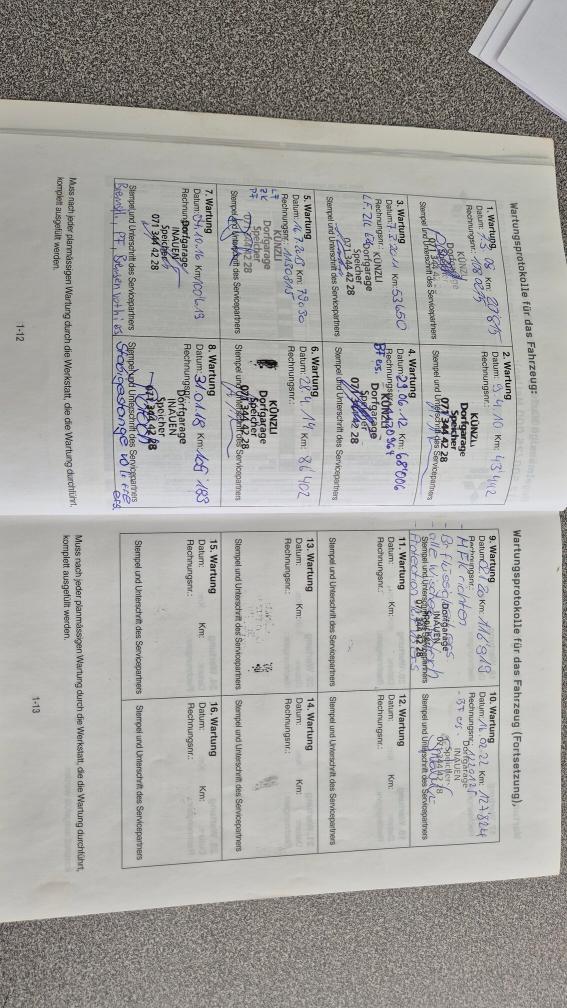 Wartungsprotokolle für das Fahrzeug:
1. Wartung
Datum: Km: 27815
Rechnungsnr.: 108025
KÜNZLI
Dorfgarage
071 344 42 28
Stempel und Unterschrift des Servicepartners
2. Wartung
Datum: 9.4.10 Km: 43402
Rechnungsnr.:
KÜNZLI
Dorfgarage
Speicher
071 344 42 28
Stempel und Unterschrift des Servicepartners
3. Wartung
Datum: 7.3.2011 Km: 53650
Rechnungsnr.:
KÜNZLI
Dorfgarage
Speicher
071 344 42 28
Stempel und Unterschrift des Servicepartners
4. Wartung
Datum: 21.06.12 Km: 68006
Rechnungsnr.:
BF es.
KÜNZLI
Dorfgarage
Speicher
071 344 42 28
Stempel und Unterschrift des Servicepartners
5. Wartung
Datum: 16.7.2013 Km: 79030
Rechnungsnr.: 1150815
LF
ZK
PF
KÜNZLI
Dorfgarage
Speicher
071 344 42 28
Stempel und Unterschrift des Servicepartners
6. Wartung
Datum: 28.4.14 Km: 86402
Rechnungsnr.:
KÜNZLI
Dorfgarage
Speicher
071 344 42 28
Stempel und Unterschrift des Servicepartners
7. Wartung
Datum: 04.10.16 Km: 100613
Rechnungsnr.:
Dorfgarage
INAUEN
Speicher
071 344 42 28
Stempel und Unterschrift des Servicepartners
8. Wartung
Datum: 31.01.18 Km: 105 183
Rechnungsnr.:
Dorfgarage
INAUEN
Speicher
071 344 42 28
Stempel und Unterschrift des Servicepartners
Muss nach jeder planmässigen Wartung durch die Werkstatt, die die Wartung durchführt,
komplett ausgefüllt werden.
1-12
Wartungsprotokolle für das Fahrzeug (Fortsetzung).
9. Wartung
Datum: Km: 116919
Rechnungsnr.:
- MFK richten
Dorfgarage
INAUEN
071 344 42 28
Stempel und Unterschrift des Servicepartners
10. Wartung
Datum: 16.02.22 Km: 127824
Rechnungsnr.: 1220125
- BF es.
Dorfgarage
INAUEN
Speicher
071 344 42 28
Stempel und Unterschrift des Servicepartners
11. Wartung
Datum: Km:
Rechnungsnr.:
Stempel und Unterschrift des Servicepartners
12. Wartung
Datum: Km:
Rechnungsnr.:
Stempel und Unterschrift des Servicepartners
13. Wartung
Datum: Km:
Rechnungsnr.:
Stempel und Unterschrift des Servicepartners
14. Wartung
Datum: Km:
Rechnungsnr.:
Stempel und Unterschrift des Servicepartners
15. Wartung
Datum: Km:
Rechnungsnr.:
Stempel und Unterschrift des Servicepartners
16. Wartung
Datum: Km:
Rechnungsnr.:
Stempel und Unterschrift des Servicepartners
Muss nach jeder planmässigen Wartung durch die Werkstatt, die die Wartung durchführt,
komplett ausgefüllt werden.
1-13